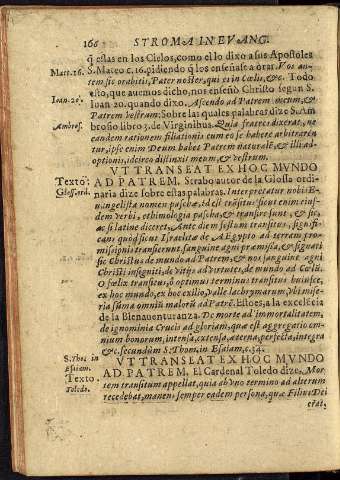 166 STROMA IN EVANG.
q̃ estas en los Cielos, como el lo dixo a sus Apostoles
Matt. 16. S. Mateo c. 16. pidiendo q̃ los enseñase a orar. Vos au-
tem sic orabitis, Pater noster, qui es in Cœlis, &c. Todo
esto, que auemos dicho, nos enseñò Christo segun S.
Ioan. 20. Ioan 20. quando dixo. Ascendo ad Patrem meum, &
Patrem vestrum: Sobre las quales palabras dize S. Am
Ambros. brosio libro 3. de Virginibus. Quia fratres dixerat, ne
eandem rationem filiationis cum eo se habere arbitraren
tur, ipse enim Deum habet Patrem naturalẽ, & illi ad-
optionis, idcirco distinxit meum, & vestrum.
VT TRANSEAT EX HOC MVNDO
Texto: AD PATREM. Strabo autor de la Glossa ordi-
Gloss. ord. naria dize sobre estas palabras. Interpretatur nobis E-
uangelista nomen pascha, id est trãsitus sicut enim eius-
dem verbi, ethimologia pascha, & transire sunt, & sic,
ac si latine diceret, Ante diem festum transitus, signifi-
cans quòd sicut Israelitæ de Ægypto ad terram pro-
missionis transierunt, sanguine agni præmissa, & signati
sic Christus de mundo ad Patrem, & nos sanguine agni
Christi insigniti, de vitijs ad virtutes, de mundo ad Cœlũ.
O fœlix transitus, ô optimus terminus transitus huiusce,
ex hoc mundo, ex hoc exilio, valle lachrymarum, vbi mise-
ria, summa omniũ malorũ ad Patrẽ. Esto es, a la excelẽcia
de la Bienauenturanza. De morte ad immortalitatem,
de ignominia Crucis ad gloriam, quæ est aggregatio om-
nium bonorum, intensa, extensa, æterna, perfecta, integra
S. Tho. in &c. secundùm S. Thom. in Esaiam, c. 34.
Esaiam. VT TRANSEAT EX HOC MVNDO
Texto. AD PATREM. El Cardenal Toledo dize. Mor-
Toledo. tem transitum appellat, quia ab vno termino ad alterum
recedebat, manens semper eadem persona, quæ Filius Dei
erat,